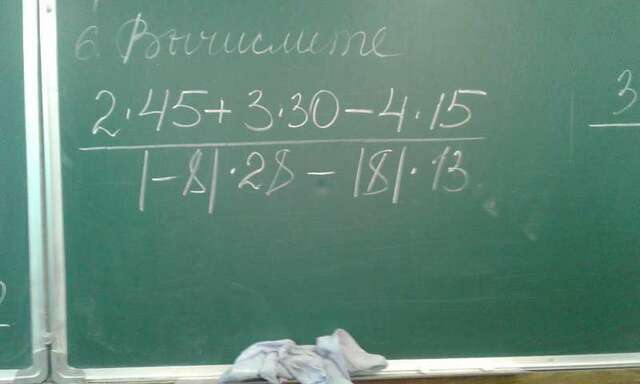 6. Вычислите
2·45+3·30-4·15
|-8|·28-|8|·13
3